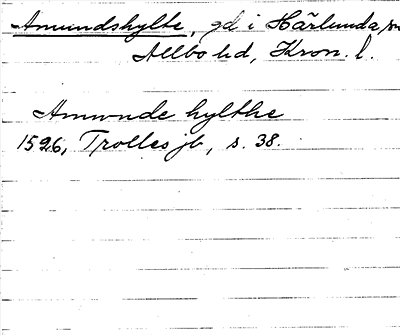 Amundshylte, gd i Härlunda sn
Allbo hd, Kron. l.
Amwnde hylthe
1526, Trolles jb, s. 38.